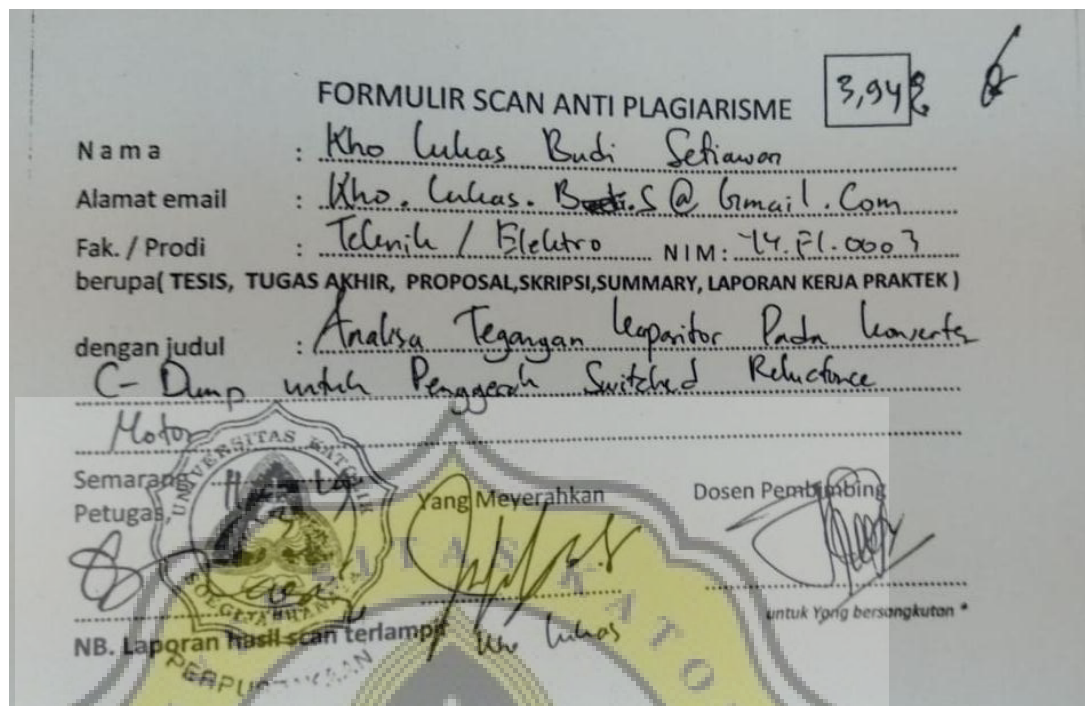 FORMULIR SCAN ANTI PLAGIARISME
3,94%
Nama : Kho Lukas Budi Setiawan
Alamat email : Kho.Lukas.B.S@Gmail.Com
Fak. / Prodi : Teknik / Elektro NIM: 14.F1.0003
berupa( TESIS, TUGAS AKHIR, PROPOSAL,SKRIPSI,SUMMARY, LAPORAN KERJA PRAKTEK )
dengan judul : Analisa Tegangan Kapasitor Pada Konverter
C-Dump untuk Penggerak Switched Reluctance
Motor
Semarang
Petugas, Yang Meyerahkan Dosen Pembimbing
UNIVERSITAS KATOLIK
SOEGIJAPRANATA
untuk Yang bersangkutan *
Kho Lukas
NB. Laporan hasil scan terlampir
PERPUSTAKAAN
ITAS KATO